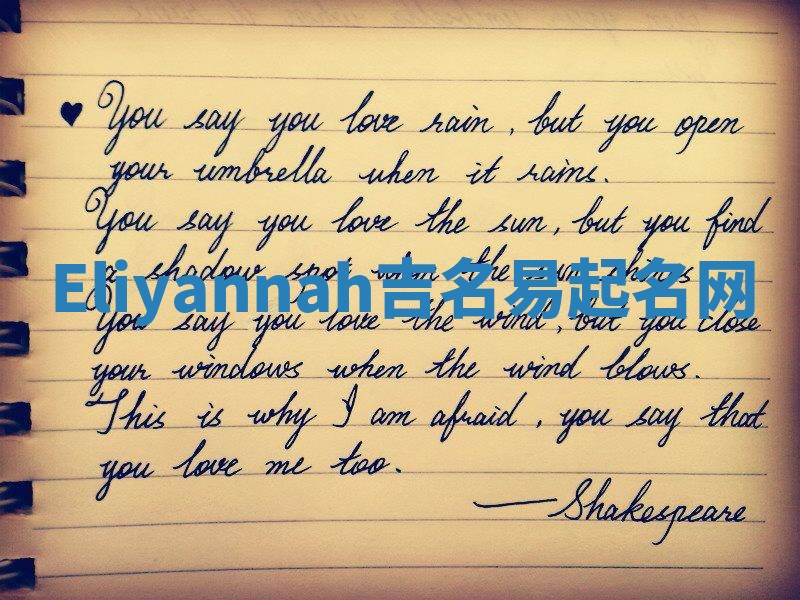 ♥ You say you love rain, but you open
your umbrella when it rains.
You say you love the sun, but you find
a shadow spot when the sun shines
Eliyannah吉名易起名网
You say you love the wind, but you close
your windows when the wind blows.
This is why I am afraid, you say that
you love me too.
— Shakespeare